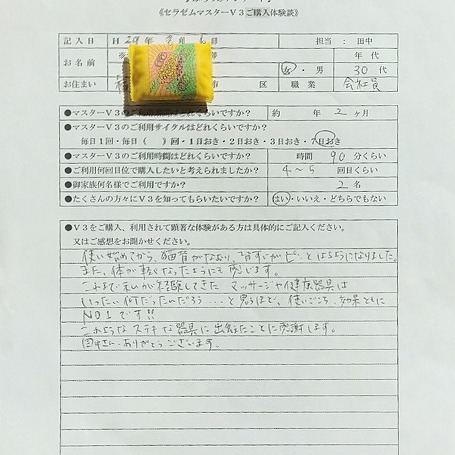 《セラゼムマスターV3ご購入体験談》
記入日 H 29年 月 日 担当：田中
お名前 女・男 30代
お住まい 区 職業 会社員
●マスターV3のご利用 ですか？ 約 年 2ヶ月
●マスターV3のご利用サイクルはどれくらいですか？
毎日1回・毎日（ ）回・1日おき・2日おき・3日おき・7日おき
●マスターV3のご利用時間はどれくらいですか？ 時間 90分くらい
●ご利用何回目位で購入したいと考えられましたか？ 4～5回目くらい
●御家族何名様でご利用ですか？ 2名
●たくさんの方にV3を知ってもらいたいですか？ はい・いいえ・どちらでもない
●V3をご購入、利用されて顕著な体験がある方は具体的にご記入ください。
又はご感想をお聞かせください。
使い始めてから、猫背がなおり、背すじがピーンとなるようになりました。
また、体が軽くなったようにも感じます。
これまで 経験してきた マッサージや健康器具は
いったい何だったんだろう...と思うほど、使いごこち、効果ともに
NO1です!!
このようなステキな器具に出会えたことに感謝します。
田中さん、ありがとうございます。